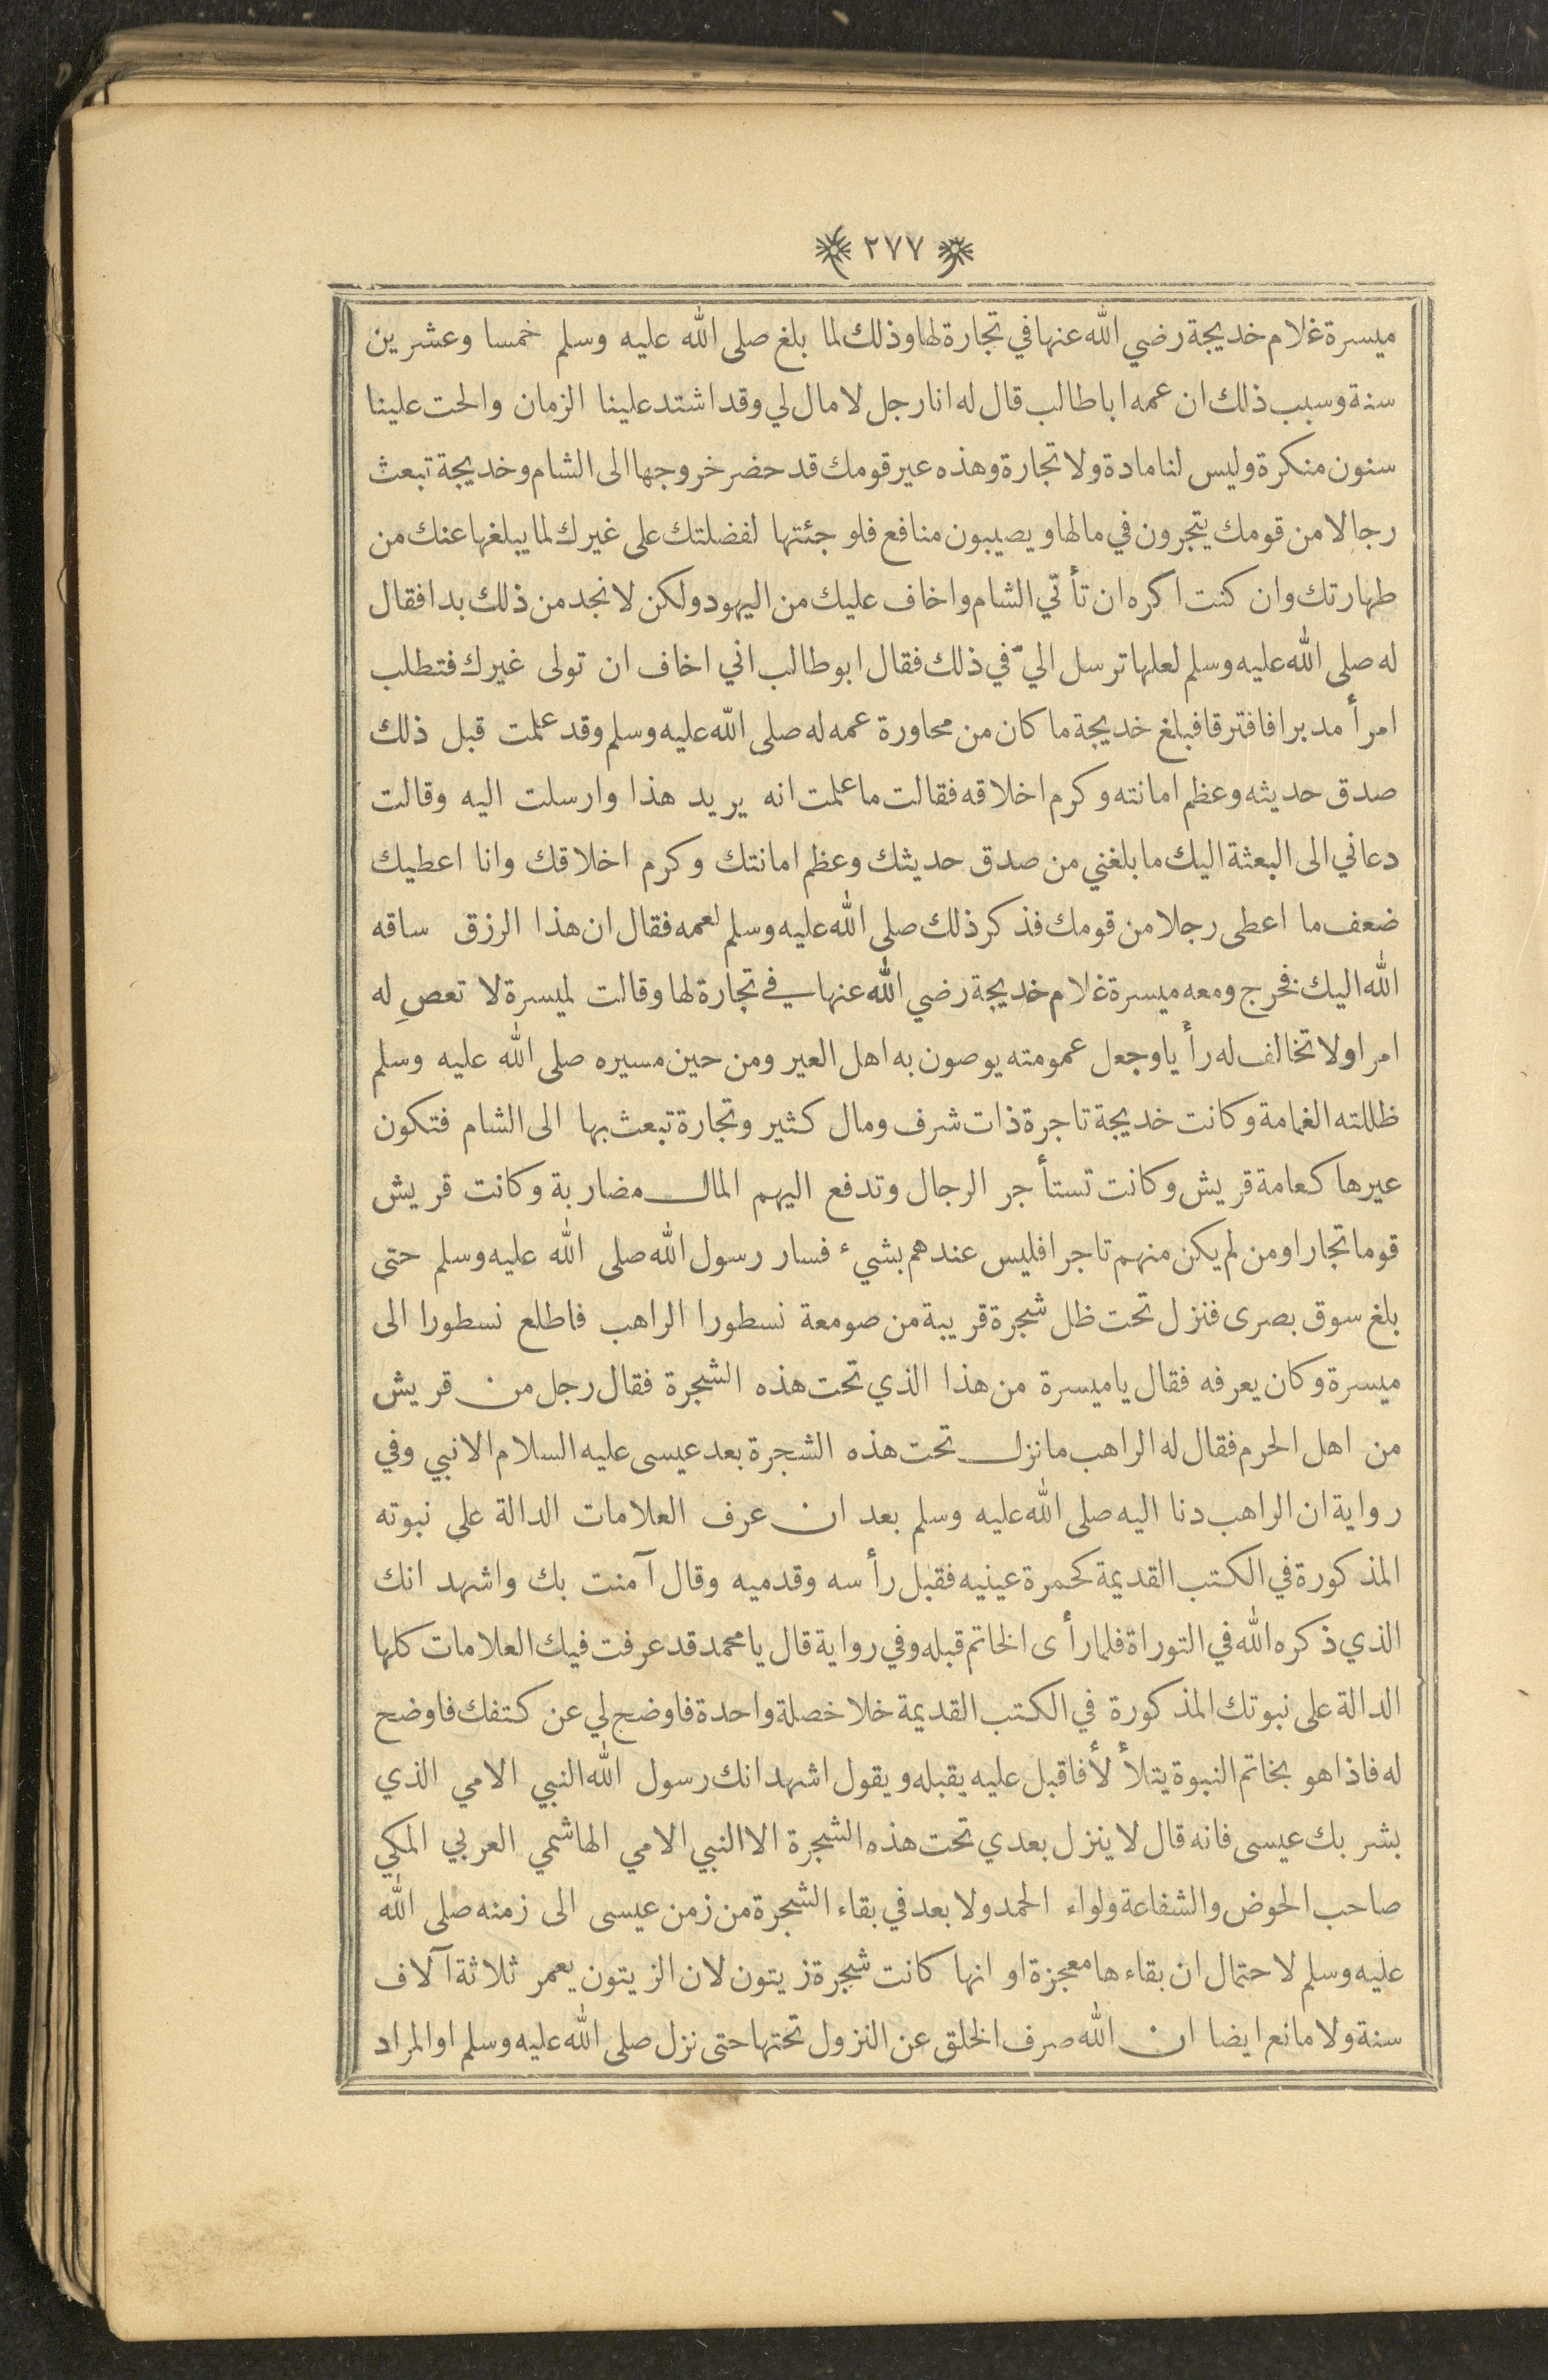 ٢٧٧
ميسرة غلام خديجة رضي الله عنها في تجارة لها وذلك لما بلغ صلى الله عليه وسلم خمسا وعشرين
سنة وسبب ذلك ان عمه ابا طالب قال له انا رجل لا مال لي وقد اشتد علينا الزمان والحت علينا
سنون منكرة وليس لنا مادة ولا تجارة وهذه عير قومك قد حضر خروجها الى الشام وخديجة تبعث
رجالا من قومك يتجرون في مالها ويصيبون منافع فلو جئتها لفضلتك على غيرك لما يبلغها عنك من
طهارتك وان كنت اكره ان تأتي الشام واخاف عليك من اليهود ولكن لا نجد من ذلك بدا فقال
له صلى الله عليه وسلم لعلها ترسل اليّ في ذلك فقال ابو طالب اني اخاف ان تولى غيرك فتطلب
امرأ مدبرا فافترقا فبلغ خديجة ما كان من محاورة عمه له صلى الله عليه وسلم وقد علمت قبل ذلك
صدق حديثه وعظم امانته وكرم اخلاقه فقالت ما علمت انه يريد هذا وارسلت اليه وقالت
دعاني الى البعثة اليك ما بلغني من صدق حديثك وعظم امانتك وكرم اخلاقك وانا اعطيك
ضعف ما اعطى رجلا من قومك فذكر ذلك صلى الله عليه وسلم لعمه فقال ان هذا الرزق ساقه
الله اليك فخرج ومعه ميسرة غلام خديجة رضي الله عنها في تجارة لها وقالت لميسرة لا تعصِ له
امرا ولا تخالف له رأيا وجعل عمومته يوصون به اهل العير ومن حين مسيره صلى الله عليه وسلم
ظللته الغمامة وكانت خديجة تاجرة ذات شرف ومال كثير وتجارة تبعث بها الى الشام فتكون
عيرها كعامة قريش وكانت تستأجر الرجال وتدفع اليهم المال مضاربة وكانت قريش
قوما تجارا ومن لم يكن منهم تاجرا فليس عندهم بشيء فسار رسول الله صلى الله عليه وسلم حتى
بلغ سوق بصرى فنزل تحت ظل شجرة قريبة من صومعة نسطورا الراهب فاطلع نسطورا الى
ميسرة وكان يعرفه فقال يا ميسرة من هذا الذي تحت هذه الشجرة فقال رجل من قريش
من اهل الحرم فقال له الراهب ما نزل تحت هذه الشجرة بعد عيسى عليه السلام الا نبي وفي
رواية ان الراهب دنا اليه صلى الله عليه وسلم بعد ان عرف العلامات الدالة على نبوته
المذكورة في الكتب القديمة كحمرة عينيه فقبل رأسه وقدميه وقال آمنت بك واشهد انك
الذي ذكره الله في التوراة فلما رأى الخاتم قبله وفي رواية قال يا محمد قد عرفت فيك العلامات كلها
الدالة على نبوتك المذكورة في الكتب القديمة خلا خصلة واحدة فاوضح لي عن كتفك فاوضح
له فاذا هو بخاتم النبوة يتلأ لأ فاقبل عليه يقبله ويقول اشهد انك رسول الله النبي الامي الذي
بشر بك عيسى فانه قال لا ينزل بعدي تحت هذه الشجرة الا النبي الامي الهاشمي العربي المكي
صاحب الحوض والشفاعة ولواء الحمد ولا بعد في بقاء الشجرة من زمن عيسى الى زمنه صلى الله
عليه وسلم لاحتمال ان بقاءها معجزة او انها كانت شجرة زيتون لان الزيتون يعمر ثلاثة آلاف
سنة ولا مانع ايضا ان الله صرف الخلق عن النزول تحتها حتى نزل صلى الله عليه وسلم او المراد